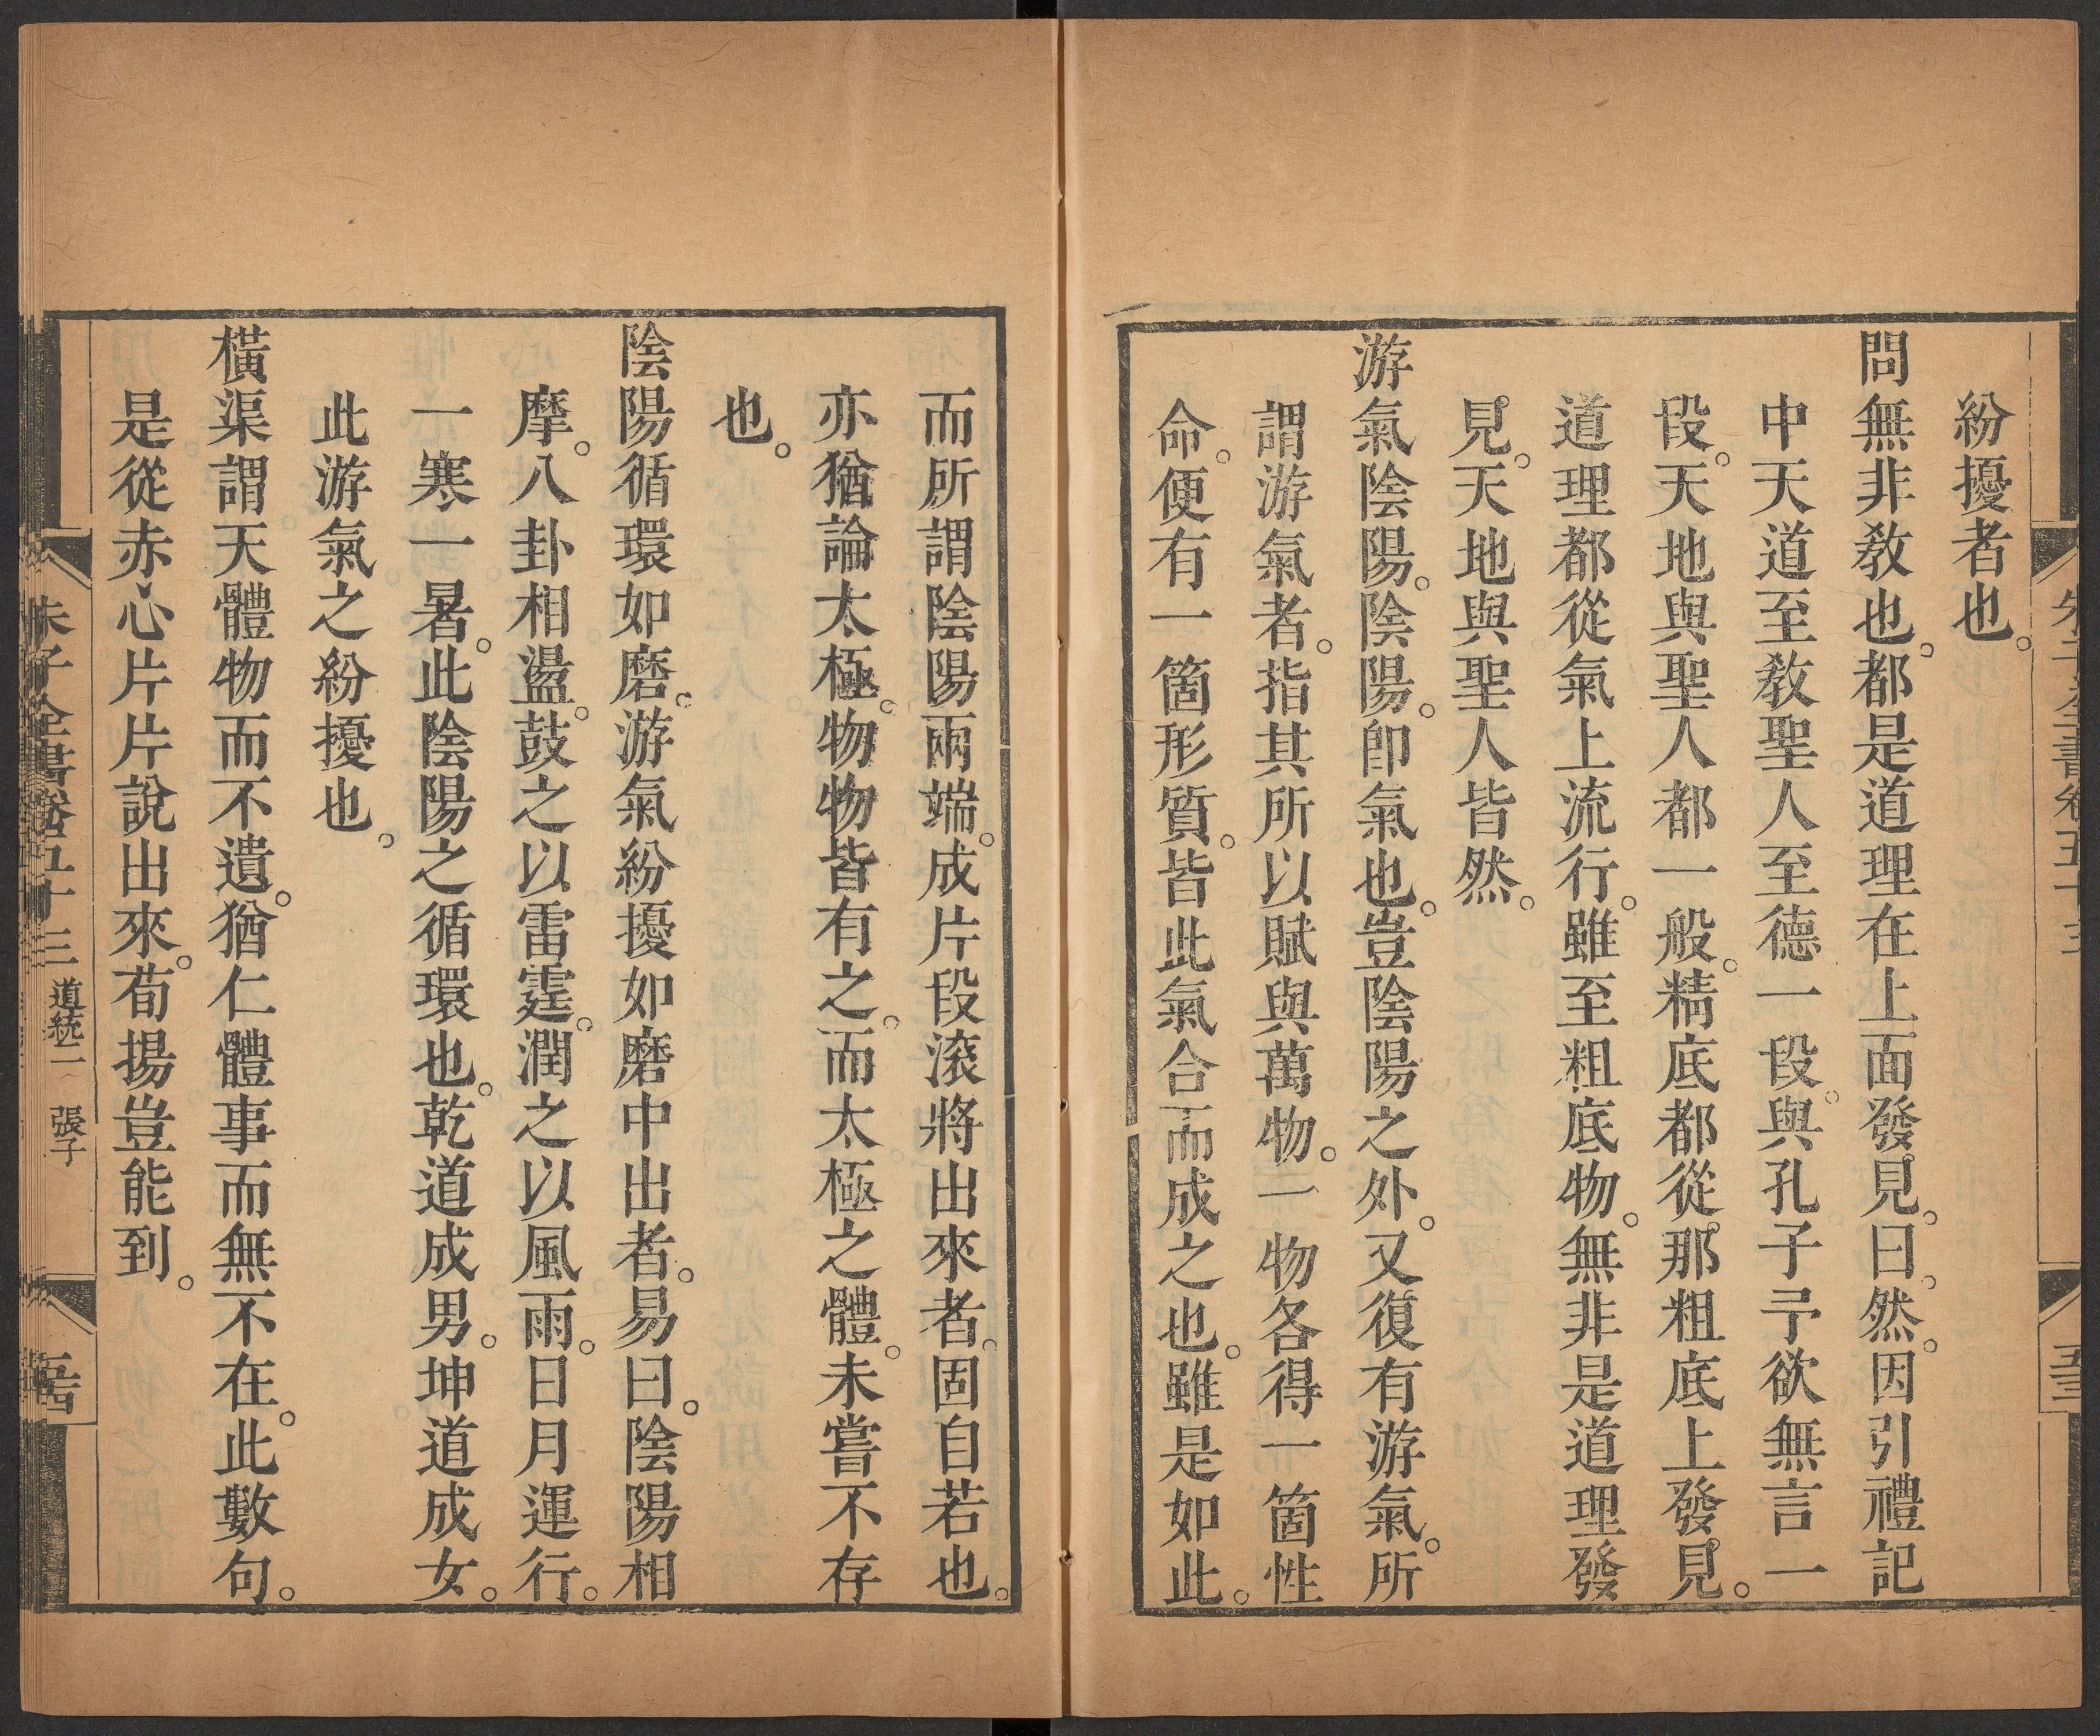 紛擾者也。
問無非敎也。都是道理在上面發見。曰。然。因引禮記
中天道至敎聖人至德一段。與孔子予欲無言一
段。天地與聖人都一般。精底都從那粗底上發見。
道理都從氣上流行。雖至粗底物。無非是道理發
見。天地與聖人皆然。
游氣陰陽。陰陽。卽氣也。豈陰陽之外。又復有游氣。所
謂游氣者。指其所以賦與萬物。一物各得一箇性
命。便有一箇形質。皆此氣合而成之也。雖是如此。
而所謂陰陽兩端。成片段滾將出來者。固自若也。
亦猶論太極。物物皆有之。而太極之體。未嘗不存
也。
陰陽循環如磨。游氣紛擾如磨中出者。易曰。陰陽相
摩。八卦相盪。鼓之以雷霆。潤之以風雨。日月運行。
一寒一暑。此陰陽之循環也。乾道成男。坤道成女。
此游氣之紛擾也。
橫渠謂天體物而不遺。猶仁體事而無不在。此數句。
是從赤心片片說出來。荀揚豈能到。
朱子全書卷五十三 道統二 張子